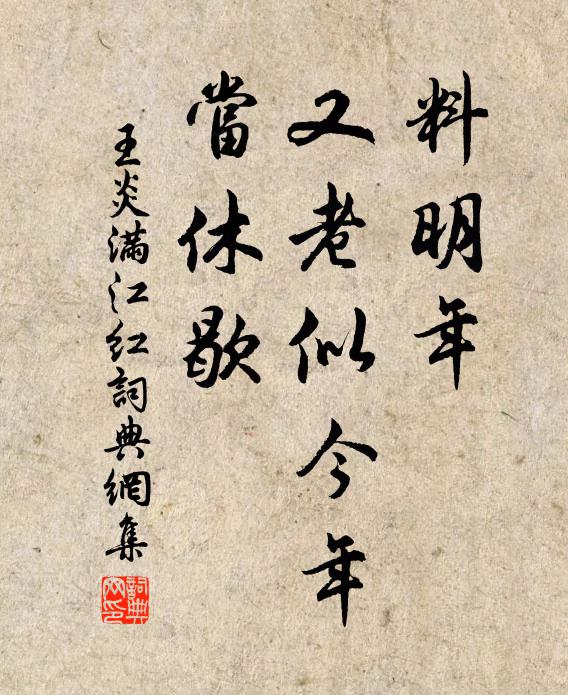 料明年
又老似今年
當休歇
王炎滿江紅詞典網集
詞典網印